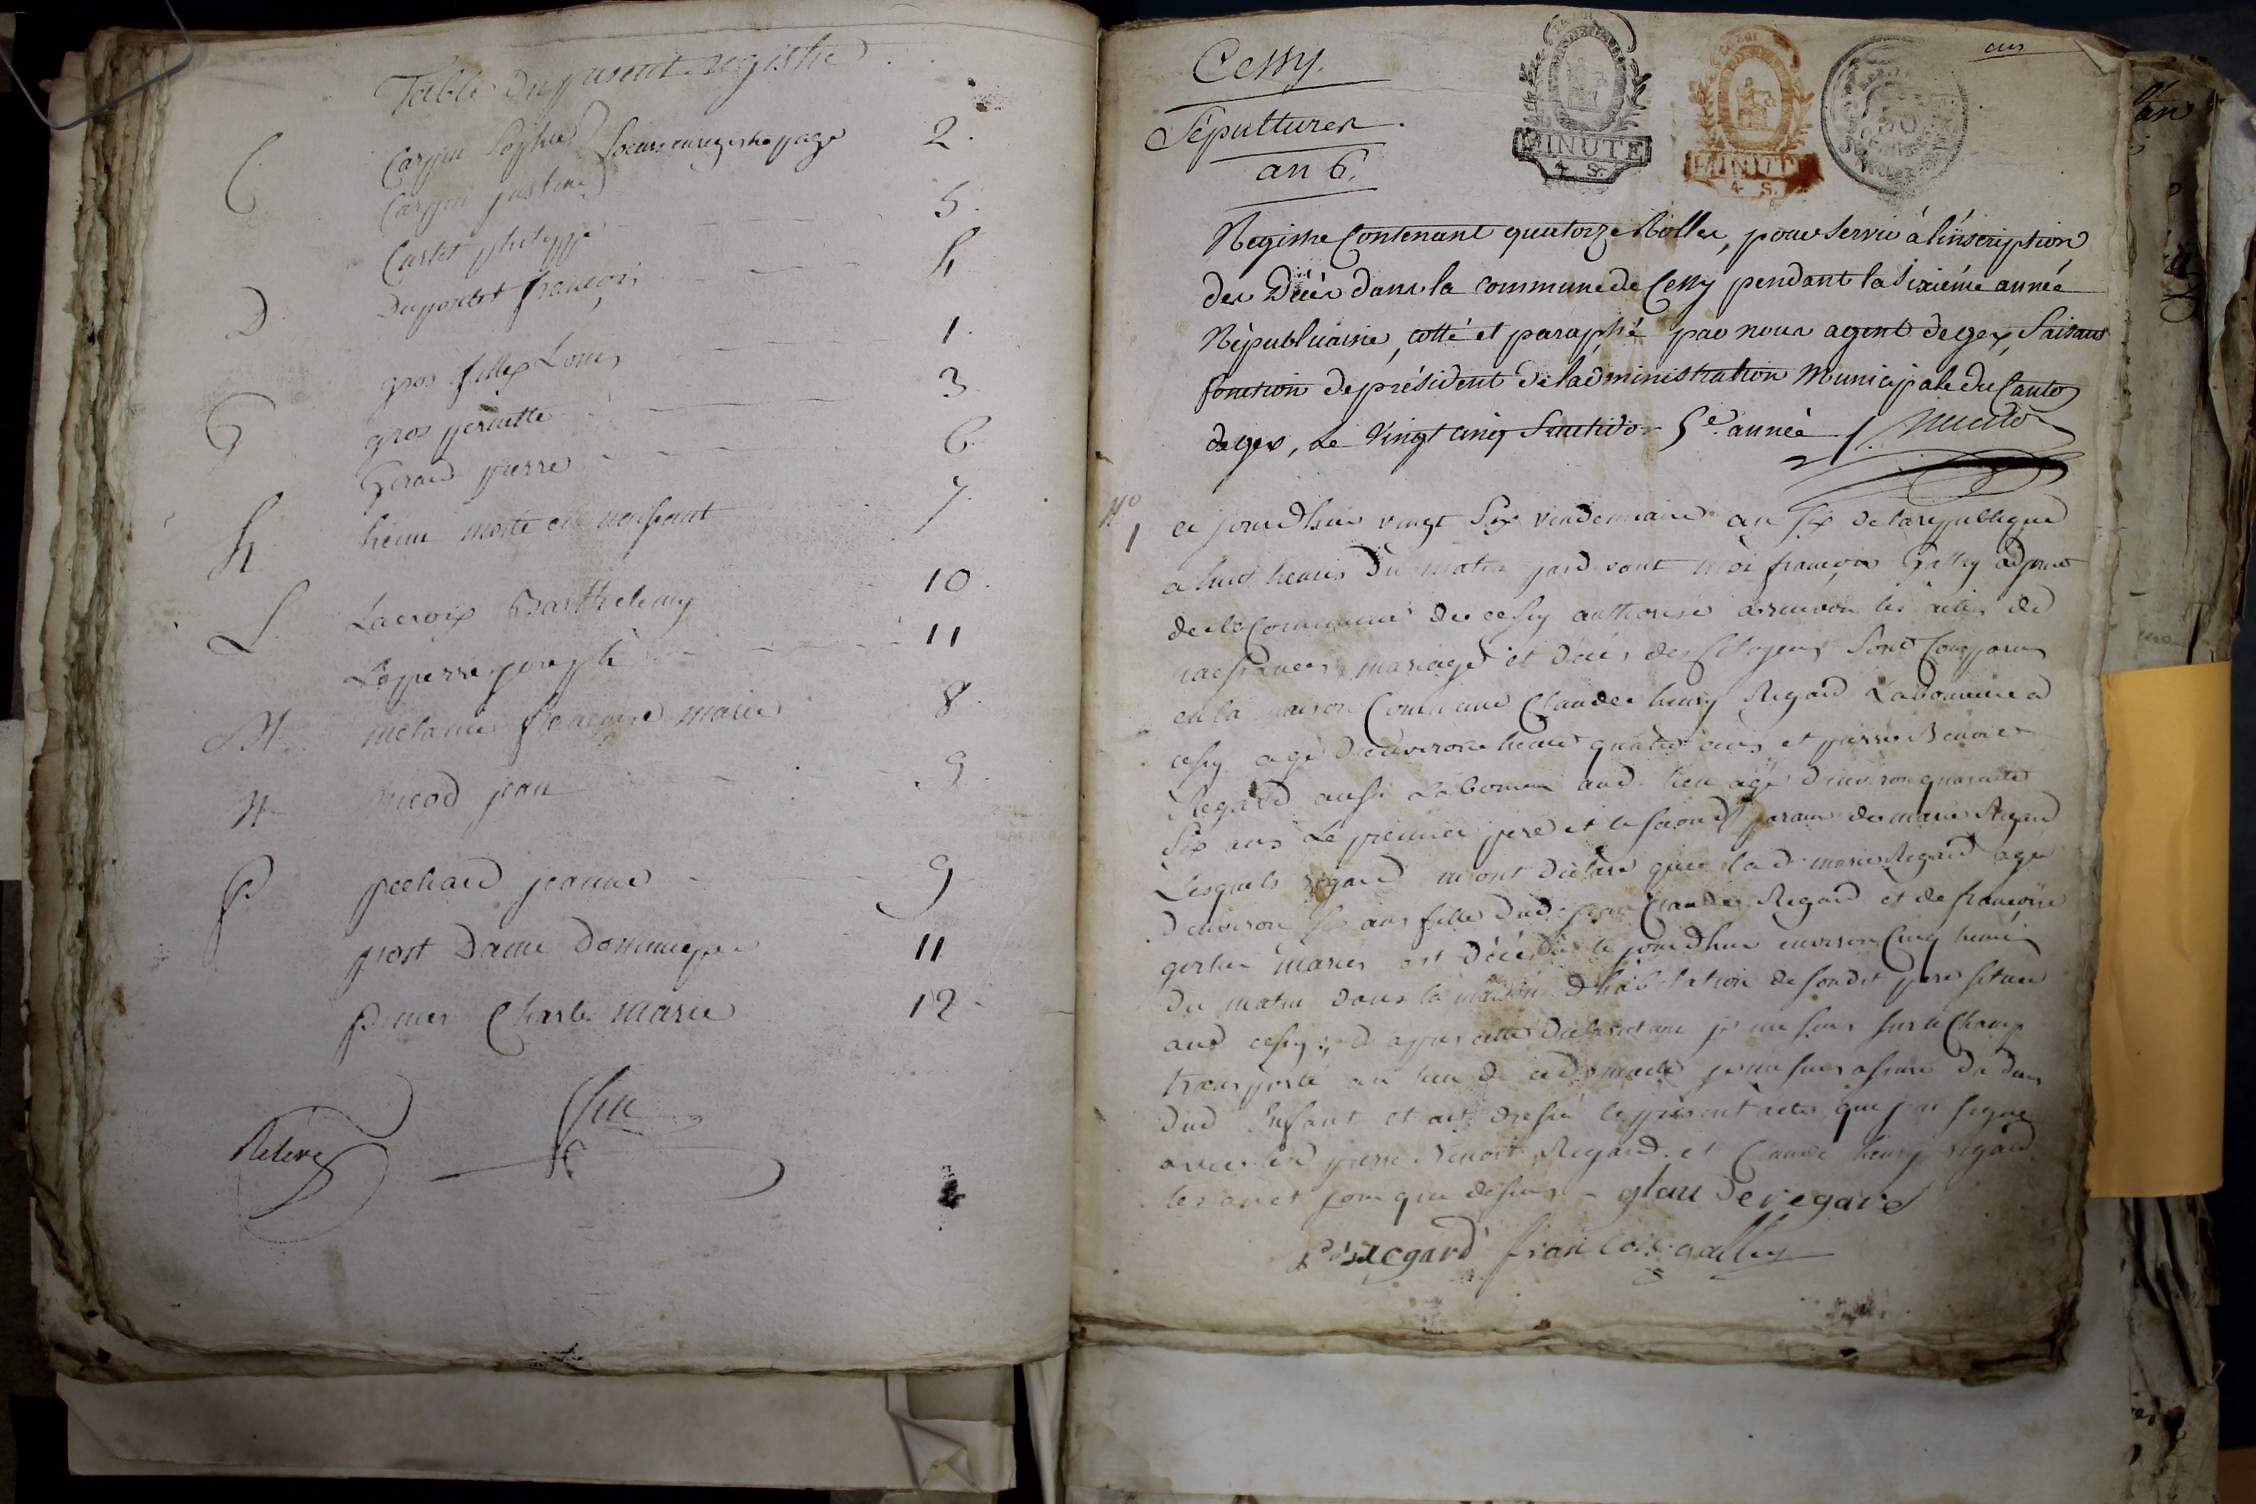 Table du present registre
C Carpin Sophie
Carpin justine Soeurs en registre page 2.
Castet philippe 5.
D Dupontet françois 4
gros fillex Louis 1.
G gros perinette 3.
Girard pierre 6.
h heine morte ou nonfant 7.
L. Lacroix Barthelemy 10.
Lapierre joseph 11
M melanie françoise marie 8.
N nicod jean 9.
P pechard jeanne 9
post Dame Dominique 11
Charle marie 12.
fin
Relevé
Cessy.
Sépultures.
an 6.
MINUTE
4. S.
MINUTE
4. S.
Registre Contenant quatorze Rolles, pour servir à l'inscription
des Décés dans la commune de Cessy pendant la Sixiéme année
Républicaine, cotté et paraphé par nous agent de gex, faisant
fonction de président de l'administration Municipale du Canton
de gex, Le Vingt cinq fructidor 5e. année
No
1
ce jourdhui vingt Six vendemiaire an six de la republique
a huit heures du matin pard vant moi françois Gally adjoint
de la Commune de cessy authorisé a recevoir les actes de
naissances, mariage et décés des Citoyens Sont Comparus
en la maison Commune Claude henry Regard Laboureur a
cessy agé d'environ trente quatre ans et pierre Benoit
Regard aussi Laboureur aud. lieu agé d'environ quarante
Six ans Le premier pere et le second parain de marie Regard
Lesquels regard m'ont déclaré que la d. marie Regard agé
d'environ six ans fille dud. Claude Regard et de françoise
marier est décédée ce jourdhui environ Cinq heures
du matin dans la maison d'habitation de son dit pere située
aud cessy, d'apres cette déclaration je me suis sur le Champ
transporté au lieu de ce domicile je me suis assuré du deces
dud Enfant et ait dressé le présent acte que j'ai signé
avec les d pierre Benoit Regard et Claude henry regard
les an et jour que dessus - glau de regard
pb Regard françois gally